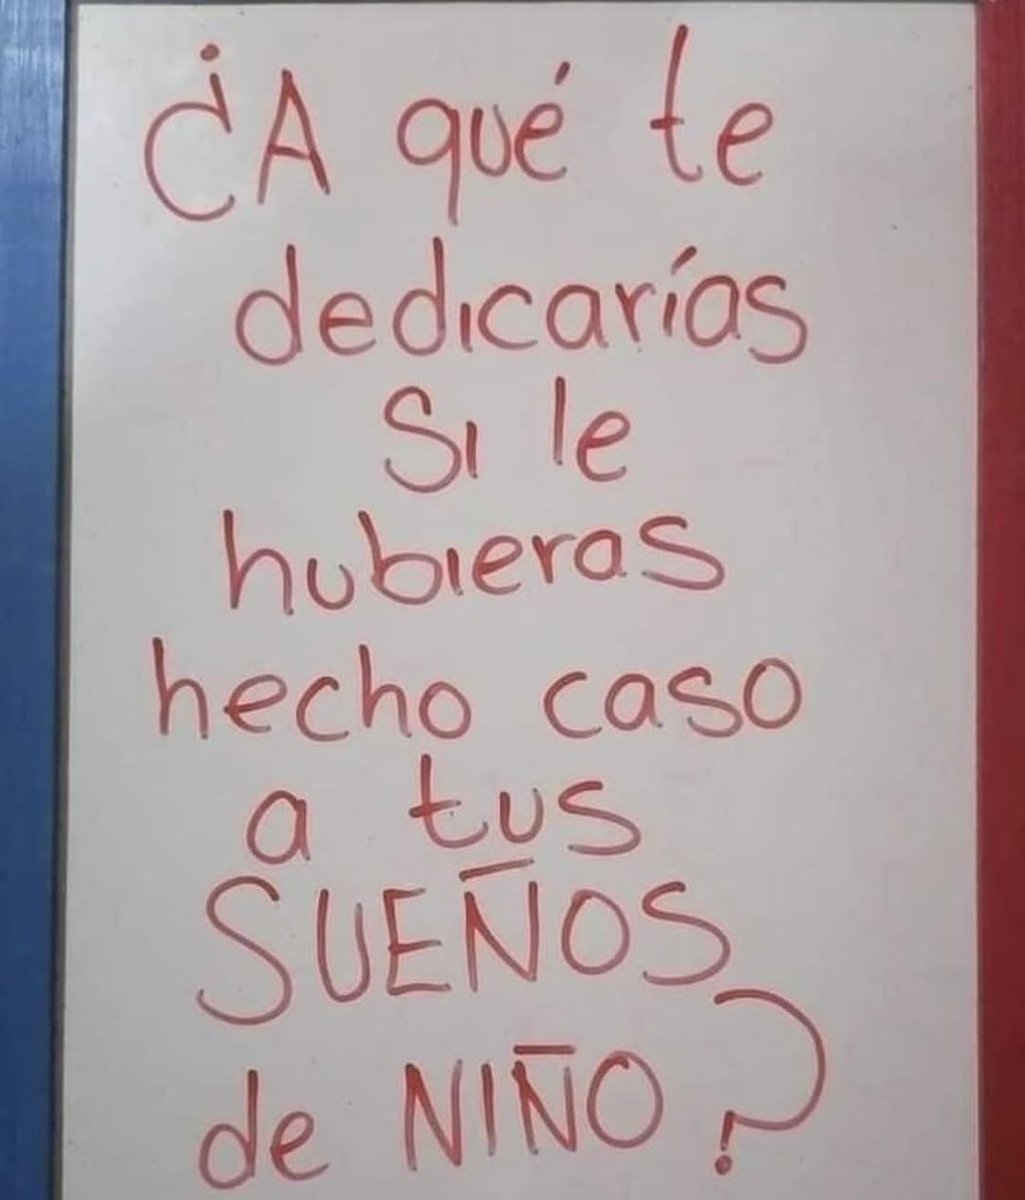 ¿A qué te
dedicarías
Si le
hubieras
hecho caso
a tus
SUEÑOS
de NIÑO?